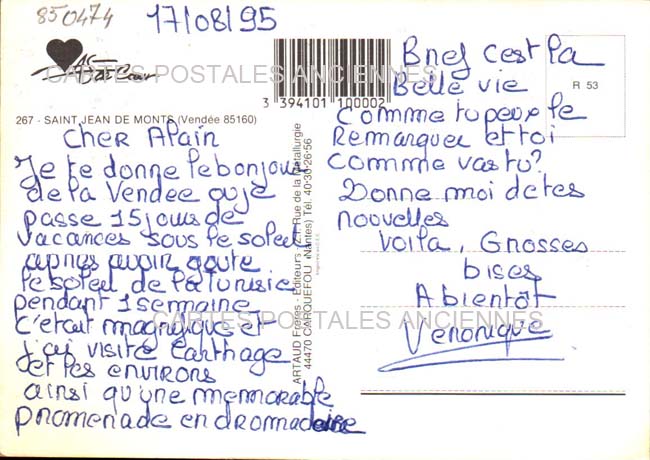 850474
17/08/95
CARTES POSTALES ANCIENNES
3 394101 100002
R 53
267 - SAINT JEAN DE MONTS (Vendée 85160)
Cher Alain
Je te donne le bonjour
de la Vendée ou je
passe 15 jours de
vacances sous le soleil
apres avoir gouté
le soleil de la tunisie
pendant 1 semaine
C'était magnifique et
j'ai visité Carthage
et les environs
ainsi qu'une memorable
promenade en dromadaire
ARTAUD Frères - Editeurs - Z.I. Rue de la Métallurgie
44470 CARQUEFOU (Nantes) Tél. 40-30-26-56
Bref c'est la
Belle vie
Comme tu peux le
Remarquer et toi
comme vas tu?
Donne moi de tes
nouvelles
Voila, Grosses
bises
A bientôt
Veronique
CARTES POSTALES ANCIENNES